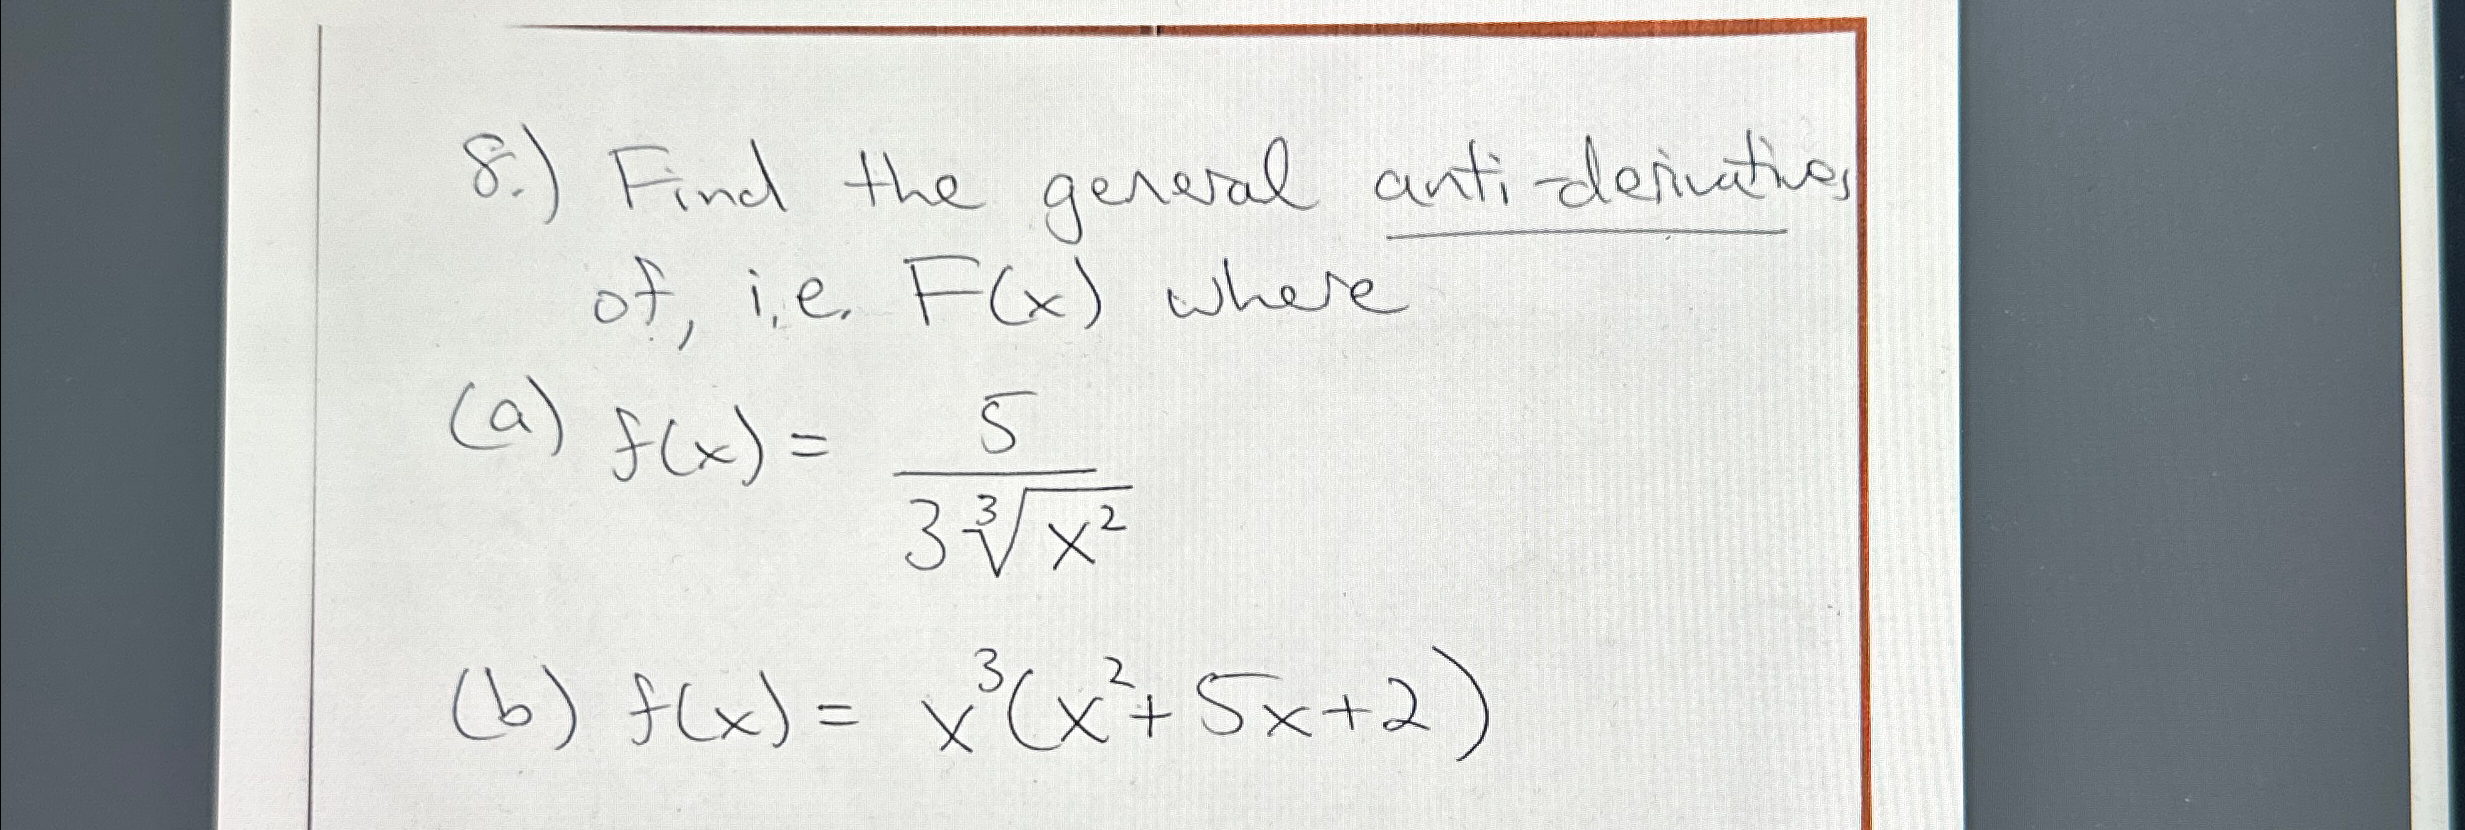 8.) Find the general anti-derivatives
of, i.e. F(x) where
(a) f(x) = 5 / (3∛x²)
(b) f(x) = x³(x² + 5x + 2)